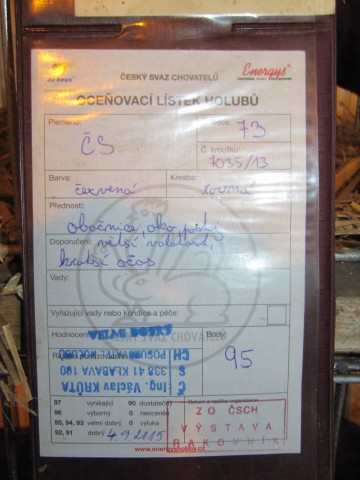 ČESKÝ SVAZ CHOVATELŮ
Energys
OCEŇOVACÍ LÍSTEK HOLUBŮ
Plemeno:
ČS
73
Č. kroužku:
7035/13
Barva:
červená
Kresba:
rovná
Přednosti:
obočnice, oko, postoj
Doporučení:
větší volatost,
kratší ocas
Vady:
Vyřazující vady nebo kondice a péče:
Hodnocení
VELMI DOBRÝ
Body:
95
Ing. Václav KRŮTA
338 41 KLABAVA 190
97 vynikající 90 dostatečný
96 výborný 0 neoceněn
95, 94, 93 velmi dobrý 0 výluka
92, 91 dobrý
4.9.2015
Datum a razítko organizace:
ZO ČSCH
VÝSTAVA
RAKOVNÍK
www.energyshobby.cz